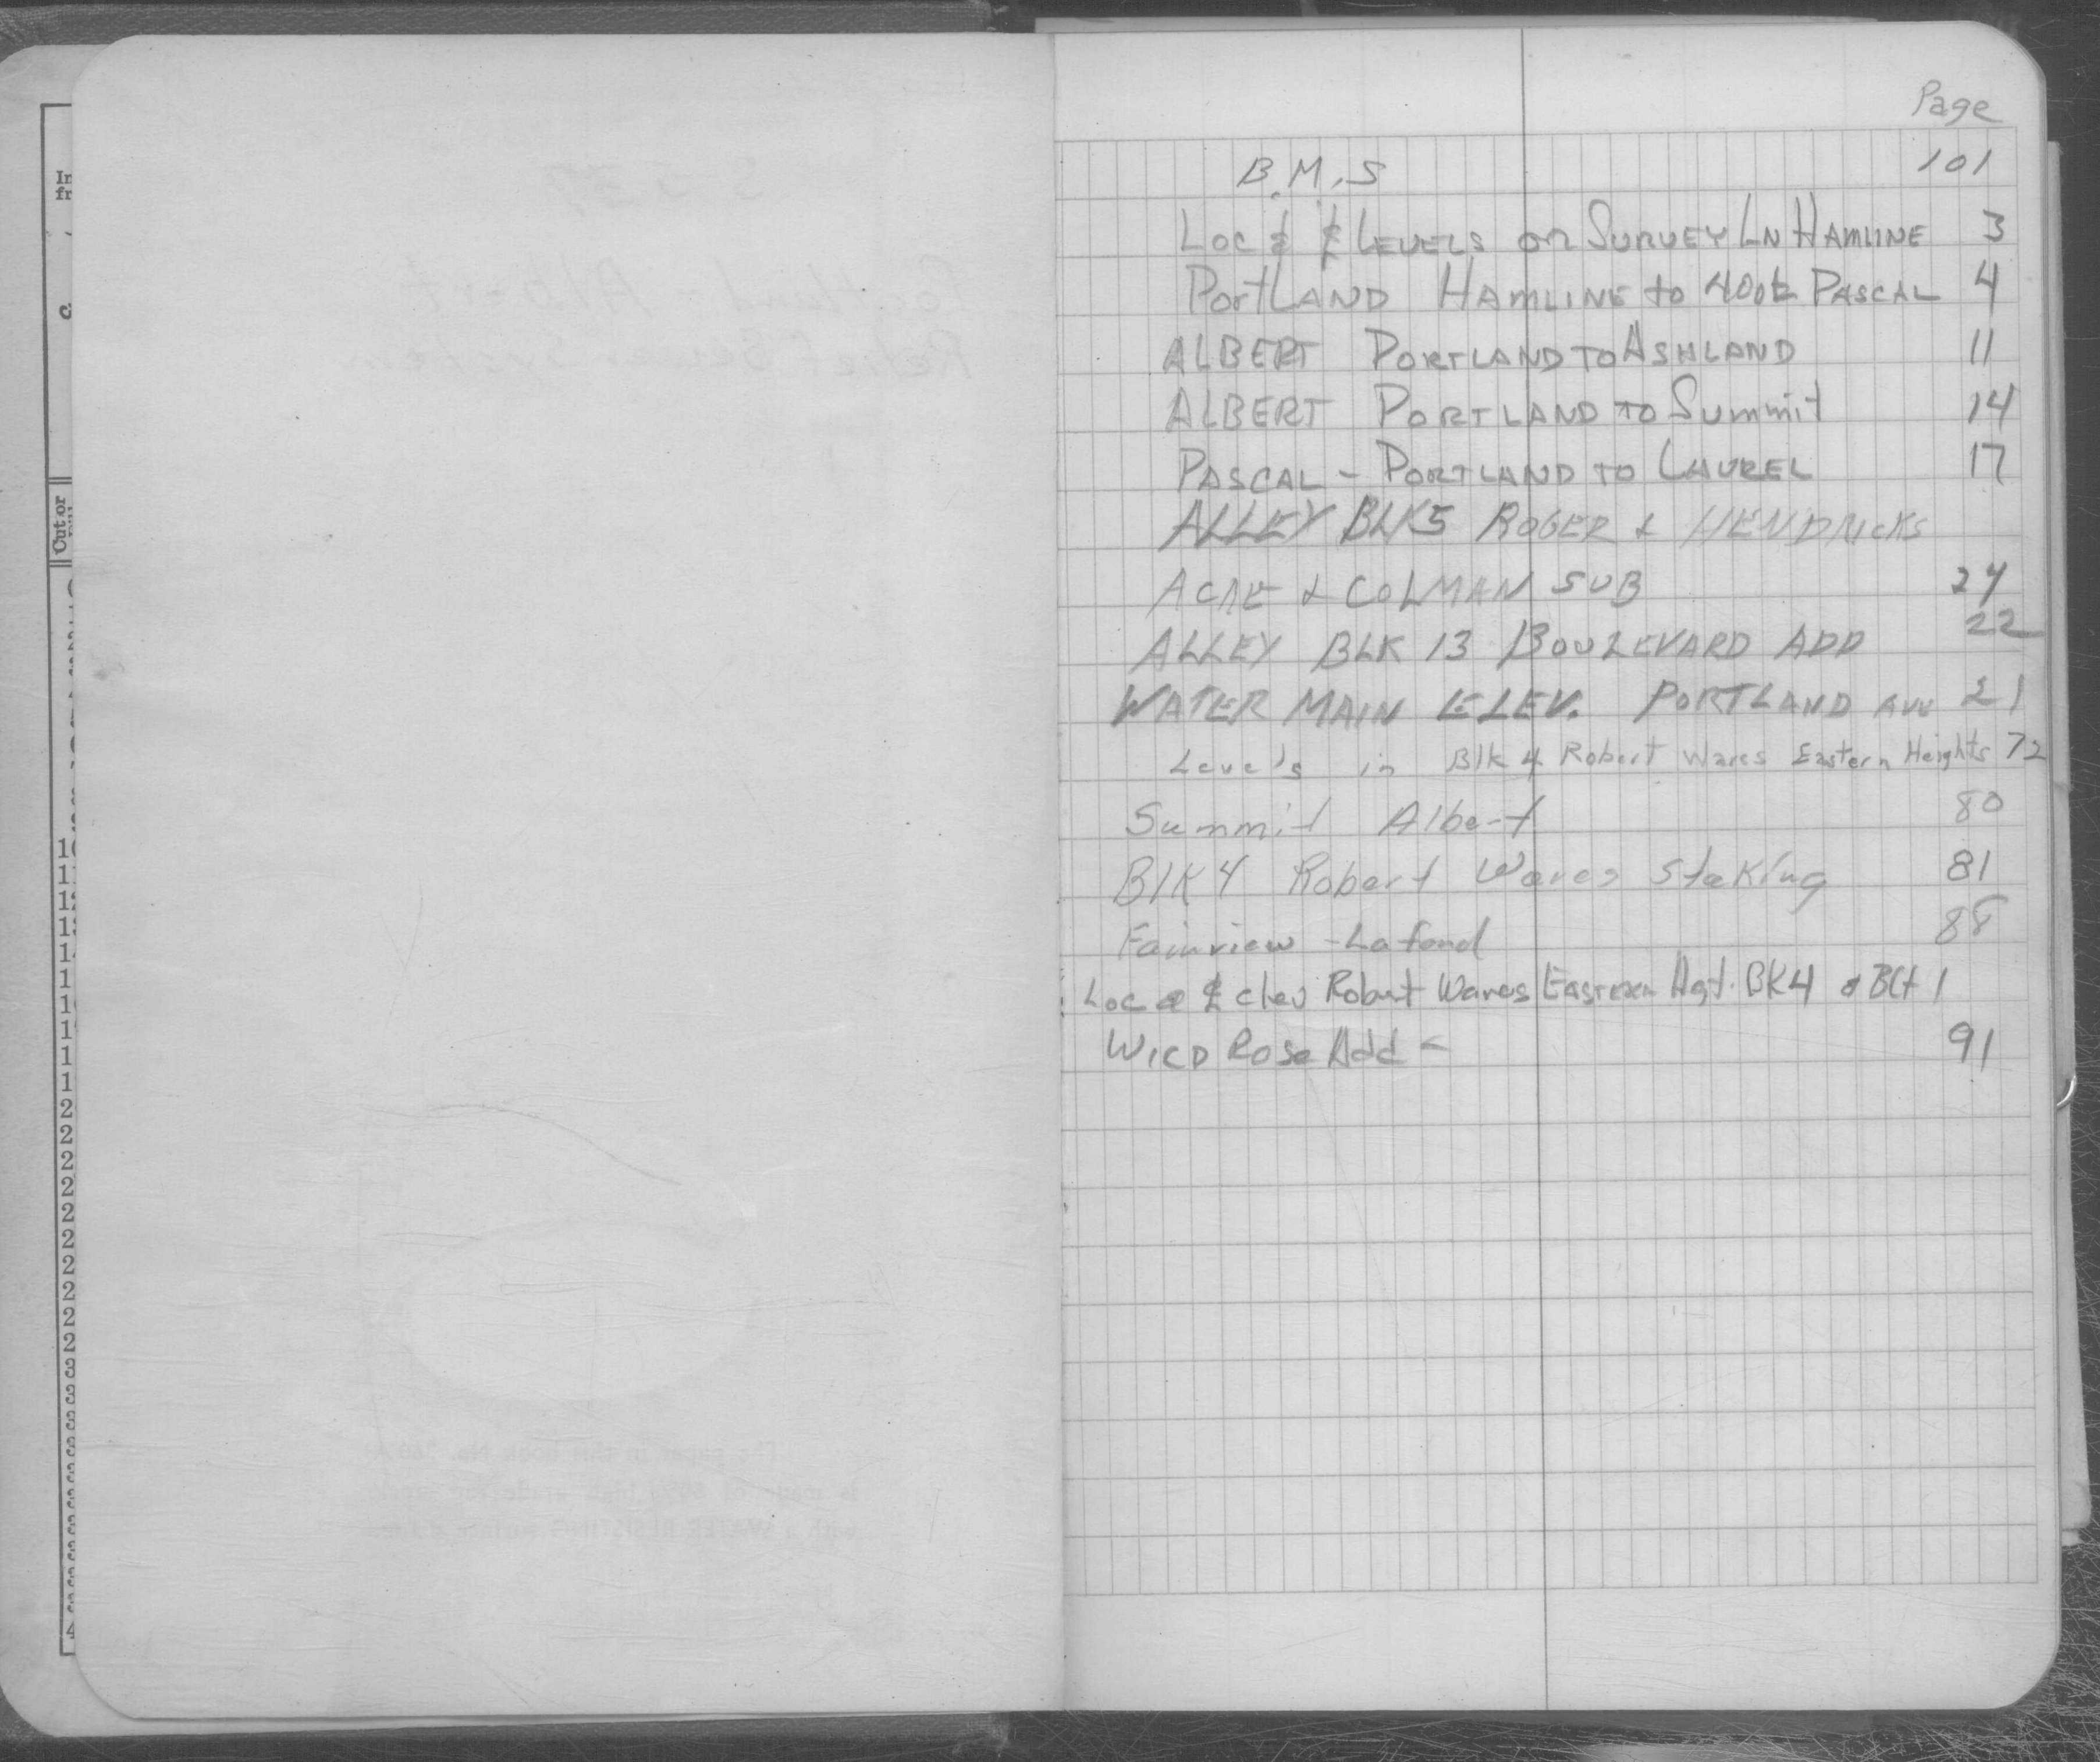 Page
B.M.S 101
LOC & ℄ LEVELS on SURVEY LN HAMLINE 3
PORTLAND HAMLINE to PASCAL 4
ALBERT PORTLAND TO ASHLAND 11
ALBERT PORTLAND TO Summit 14
PASCAL - PORTLAND TO LAUREL 17
ALLEY BLK 5 ROGER & HENDRICKS
ACRE & COLMAN SUB 24
ALLEY BLK 13 BOULEVARD ADD 22
WATER MAIN ELEV. PORTLAND AVE 21
Levels in Blk 4 Robert Wares Eastern Heights 72
Summit Albert 80
Blk 4 Robert Wares Staking 81
Fairview - Lafond 88
Loc ℄ elev Robert Wares Eastern Hgt. BK4 1
WILD Rose Add - 91
Cut or